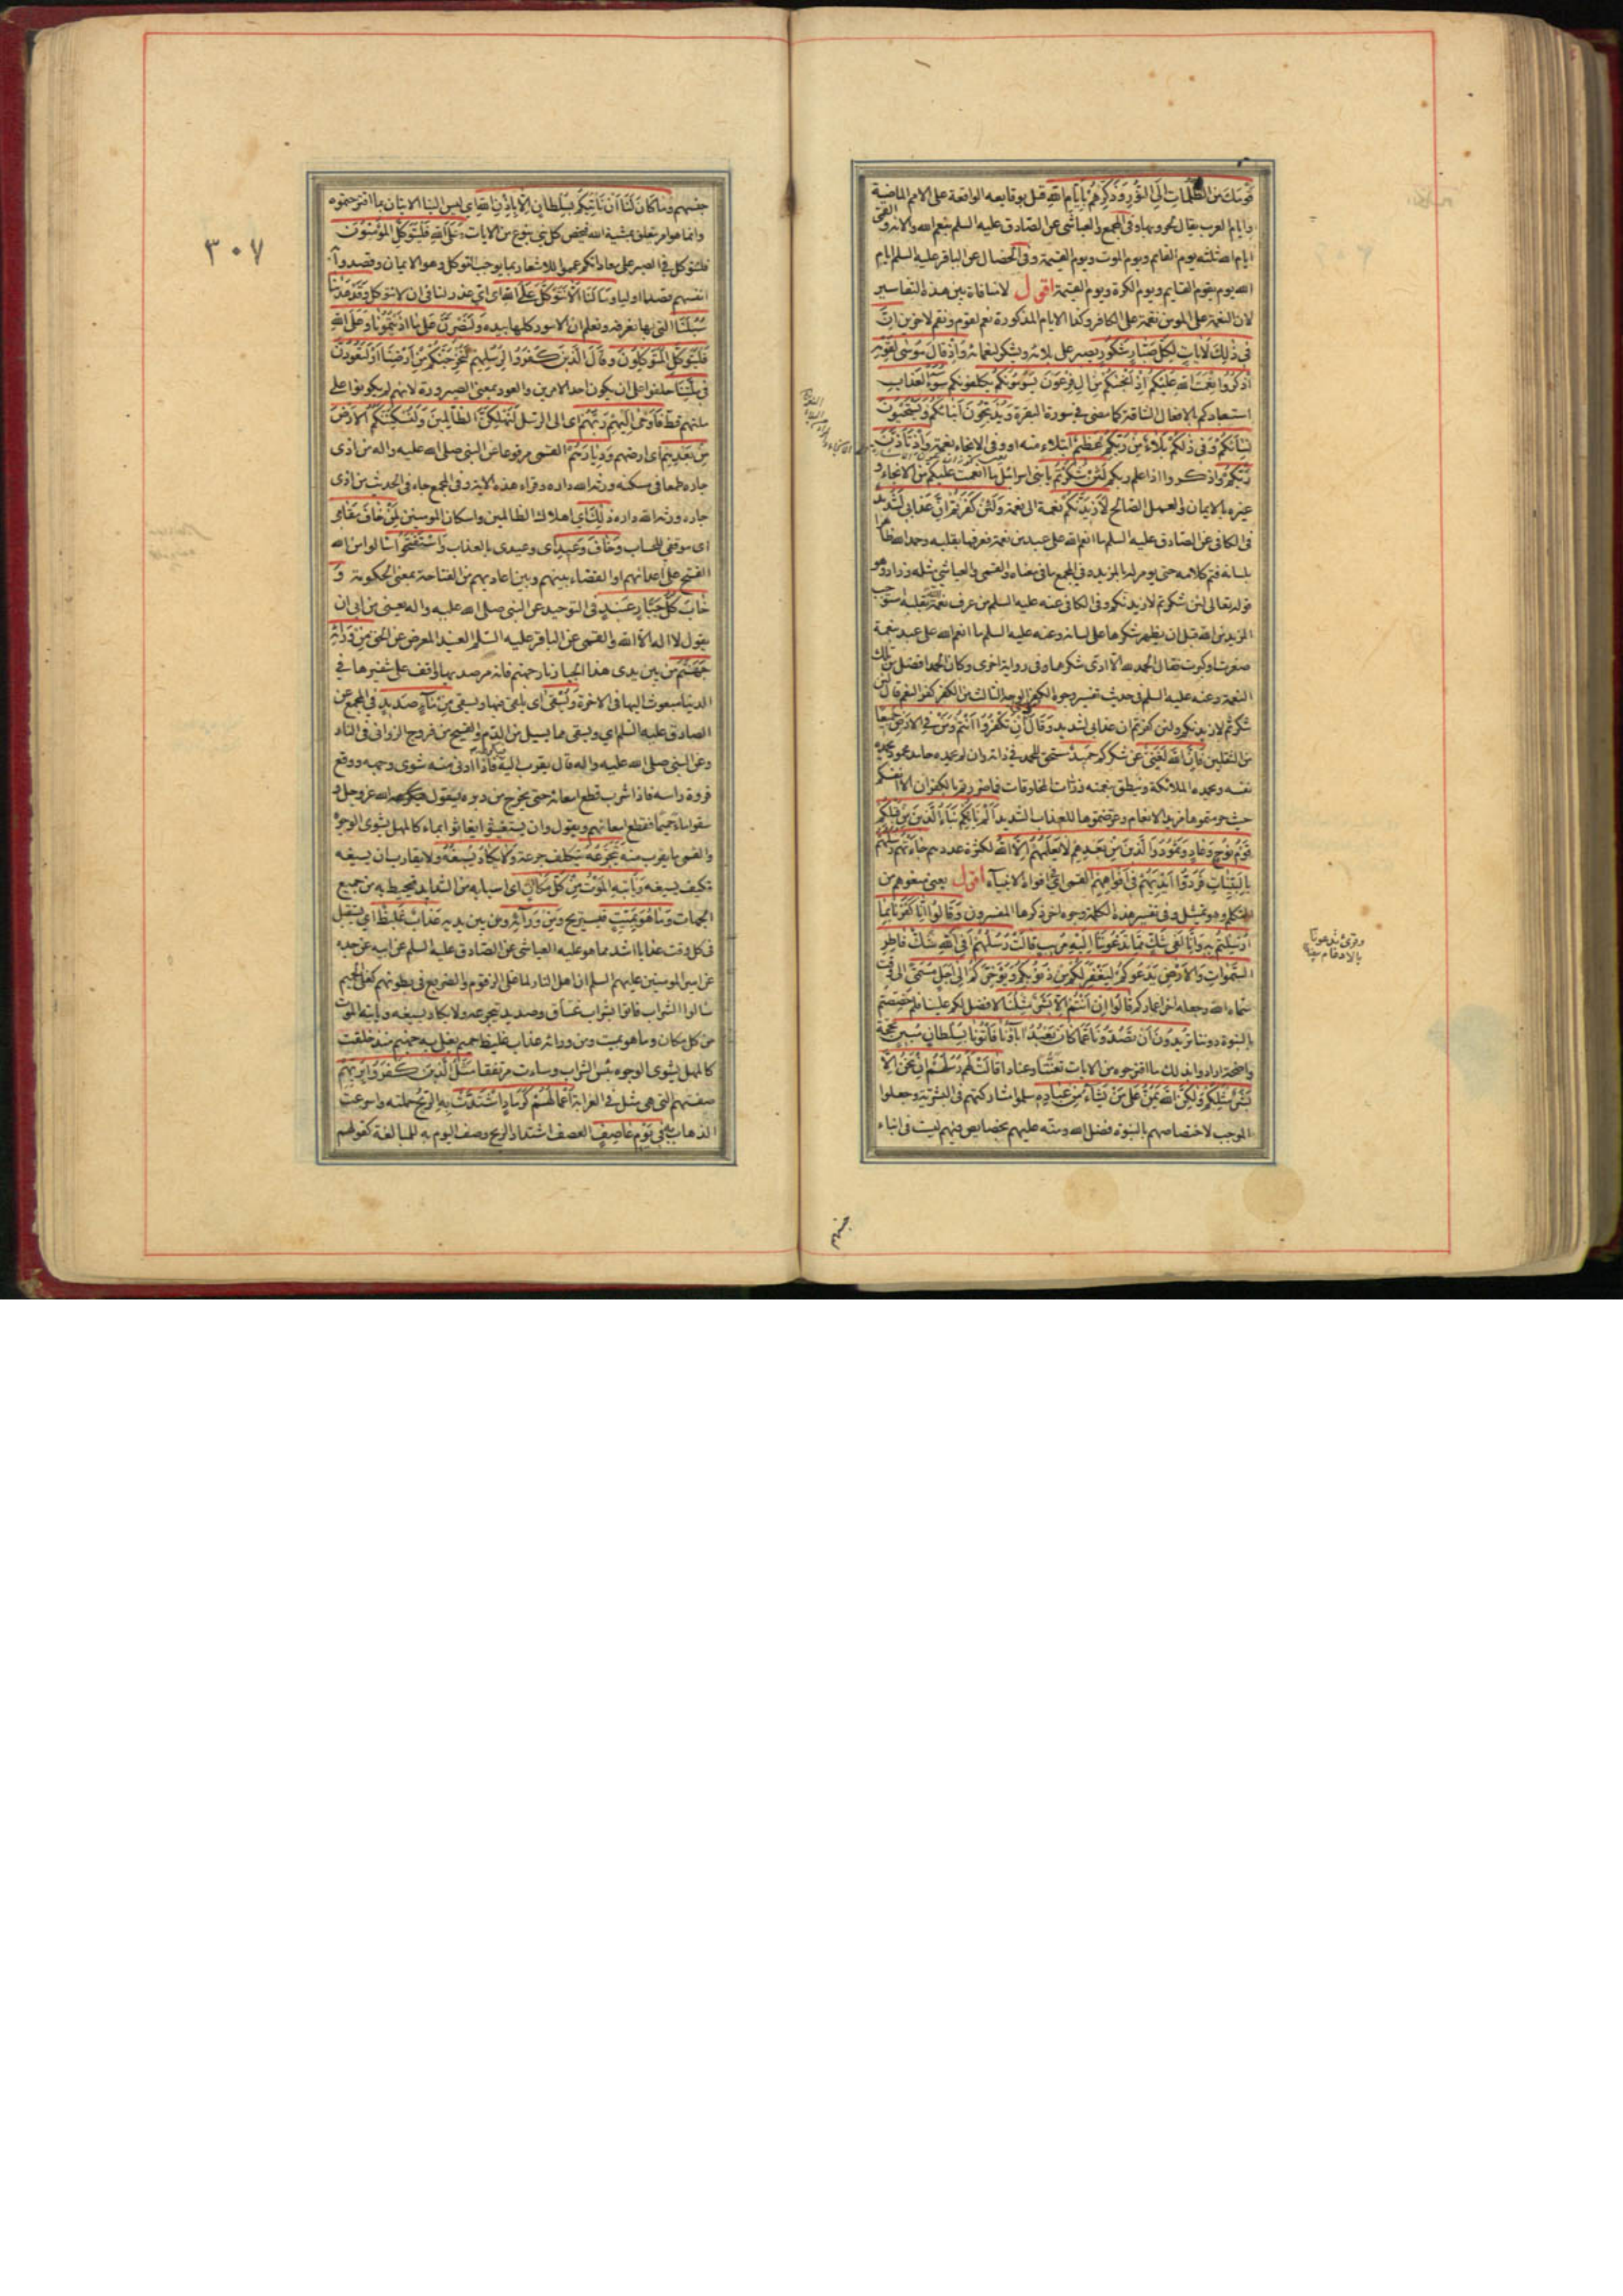 قومك من الظلمات الى النور وذكرهم بايام الله قيل بوقايعه الواقعة على الامم الماضية
وايام العرب يقال لحروبها وفي المجمع والعياشي عن الصادق عليه السلم بنعم الله والائه والقمي
ايام الله ثلثه يوم القايم ويوم الموت ويوم القيمة وفي الخصال عن الباقر عليه السلم ايام
الله يوم يقوم القايم ويوم الكرة ويوم القيمة اقول لا منافاة بين هذه التفاسير
لان النعمة على المومن نقمة على الكافر وكذا الايام المذكورة نعم لقوم ونقم لاخرين ان
في ذلك لايات لكل صبار شكور يصبر على بلائه ويشكر لنعمائه واذ قال موسى لقومه
اذكروا نعمت الله عليكم اذ انجيكم من ال فرعون يسومونكم يكلفونكم سوء العذاب
استعبادكم بالافعال الشاقة كما مضى في سورة البقرة ويذبحون ابناءكم ويستحيون
نساءكم وفي ذلكم بلاء من ربكم عظيم ابتلاء منه او وفي الانجاء نعمة واذ تاذن
ربكم واذكروا اذ اعلم ربكم لئن شكرتم يا بني اسرائيل ما انعمت عليكم من الانجاء و
غيره بالايمان والعمل الصالح لازيدنكم نعمة الى نعمة ولئن كفرتم ان عذابي لشديد
في الكافي عن الصادق عليه السلم ما انعم الله على عبد من نعمة فعرفها بقلبه وحمد الله ظاهرا
بلسانه فتم كلامه حتى يومر له بالمزيد وفي المجمع ما في معناه والقمي والعياشي مثله وزاد وهو
قوله تعالى لئن شكرتم لازيدنكم وفي الكافي عنه عليه السلم من عرف نعمة الله بقلبه استوجب
المزيد من الله قبل ان يظهر شكرها على لسانه وعنه عليه السلم ما انعم الله على عبد بنعمة
صغرت او كبرت فقال الحمد لله الا ادى شكرها وفي رواية اخرى وكان الحمد افضل من تلك
النعمة وعنه عليه السلم في حديث تفسير وجوه الكفر الوجه الثالث من الكفر كفر النعم قال لئن
شكرتم لازيدنكم ولئن كفرتم ان عذابي لشديد وقال موسى ان تكفروا انتم ومن في الارض جميعا
من الثقلين فان الله لغني عن شكركم حميد مستحق للحمد في ذاته وان لم يحمده حامد محمود يحمده
نفسه ويحمده الملائكة وينطق بنعمته ذرات المخلوقات فما ضررتم بالكفران الا انفسكم
حيث حرمتموها مزيد الانعام وعرضتموها للعذاب الشديد الم ياتكم نبا الذين من قبلكم
قوم نوح وعاد وثمود والذين من بعدهم لا يعلمهم الا الله لكثرة عددهم جاءتهم رسلهم
بالبينات فردوا ايديهم في افواههم القمي في افواه الانبياء اقول يعني منعوهم من
التكلم وهو تمثيل وفي تفسير هذه الكلمة وجوه اخر ذكرها المفسرون وقالوا انا كفرنا بما
ارسلتم به وانا لفي شك مما تدعوننا اليه مريب قالت رسلهم افي الله شك فاطر
السموات والارض يدعوكم ليغفر لكم من ذنوبكم ويؤخركم الى اجل مسمى الى وقت
سماه الله وجعله اخر اعماركم قالوا ان انتم الا بشر مثلنا لا فضل لكم علينا فلم خصصتم
بالنبوة دوننا تريدون ان تصدونا عما كان يعبد اباؤنا فاتونا بسلطان مبين بحجة
واضحة ارادوا بذلك ما اقترحوه من الايات تعنتا وعنادا قالت لهم رسلهم ان نحن الا
بشر مثلكم ولكن الله يمن على من يشاء من عباده سلموا مشاركتهم في البشرية وجعلوا
الموجب لاختصاصهم بالنبوة فضل الله ومنه عليهم بخصايص فيهم ليست في ابناء
وقرئ تدعونا
بالادغام
جنسهم
٣٠٧
جنسهم وما كان لنا ان ناتيكم بسلطان الا باذن الله اى ليس الينا الاتيان بما اقترحتموه
وانما هو امر يتعلق بمشية الله فيخص كل نبي بنوع من الايات وعلى الله فليتوكل المؤمنون
فلنتوكل في الصبر على معاداتكم عمموا للاشعار بما يوجب التوكل وهو الايمان وقصدوا به
انفسهم قصدا اوليا وما لنا الا نتوكل على الله اى اي عذر لنا في ان لا نتوكل وقد هدينا
سبلنا التي بها نعرفه ونعلم ان الامور كلها بيده ولنصبرن على ما اذيتمونا وعلى الله
فليتوكل المتوكلون وقال الذين كفروا لرسلهم لنخرجنكم من ارضنا او لتعودن
في ملتنا حلفوا على ان يكون احد الامرين والعود بمعنى الصيرورة لانهم لم يكونوا على
ملتهم قط فاوحى اليهم ربهم اى الى الرسل لنهلكن الظالمين ولنسكننكم الارض
من بعدهم اى ارضهم وديارهم القمي مرفوعا عن النبي صلى الله عليه واله من اذى
جاره طمعا في مسكنه ورثه الله داره وقراء هذه الاية وفي المجمع جاء في الحديث من اذى
جاره ورثه الله داره ذلك اى اهلاك الظالمين واسكان المومنين لمن خاف مقامى
اى موقفي للحساب وخاف وعيد اى وعيدى بالعذاب واستفتحوا سالوا من الله
الفتح على اعدائهم او القضاء بينهم وبين اعاديهم من الفتاحة بمعنى الحكومة و
خاب كل جبار عنيد في التوحيد عن النبي صلى الله عليه واله يعنى من ابى ان
يقول لا اله الا الله والقمي عن الباقر عليه السلم العنيد المعرض عن الحق من ورائه
جهنم من بين يدى هذا الجبار نار جهنم فانه مرصد بها واقف على شفيرها في
الدنيا مبعوث اليها في الاخرة ويسقى اى يلقى فيها ويسقى من ماء صديد في المجمع عن
الصادق عليه السلم اي ويسقى مما يسيل من الدم والقيح من فروج الزواني في النار
وعن النبي صلى الله عليه واله قال يقرب اليه فيكرهه فاذا ادني منه شوى وجهه ووقع
فروة راسه فاذا شرب قطع امعاءه حتى يخرج من دبره يقول الله عز وجل و
سقوا ماء حميما فقطع امعاءهم ويقول وان يستغيثوا يغاثوا بماء كالمهل يشوى الوجوه
والقمي ما يقرب منه يتجرعه يتكلف جرعه ولا يكاد يسيغه ولا يقارب ان يسيغه
فكيف يسيغه وياتيه الموت من كل مكان اى اسبابه من الشدايد فتحيط به من جميع
الجهات وما هو بميت فيستريح ومن ورائه ومن بين يديه عذاب غليظ اى يستقبل
في كل وقت عذابا اشد مما هو عليه العياشى عن الصادق عليه السلم عن ابيه عن جده
عن امير المومنين عليهم السلم ان اهل النار لما غلى الزقوم والضريع في بطونهم كغلى الحميم
سالوا الشراب فاتوا بشراب غساق وصديد يتجرعه ولا يكاد يسيغه وياتيه الموت
من كل مكان وما هو بميت ومن ورائه عذاب غليظ حميم يغلى به جهنم منذ خلقت
كالمهل يشوى الوجوه بئس الشراب وساءت مرتفقا مثل الذين كفروا بربهم
صفتهم التى هى مثل في الغرابة اعمالهم كرماد اشتدت به الريح حملته واسرعت
الذهاب به في يوم عاصف العصف اشتداد الريح وصف اليوم به للمبالغة كقولهم